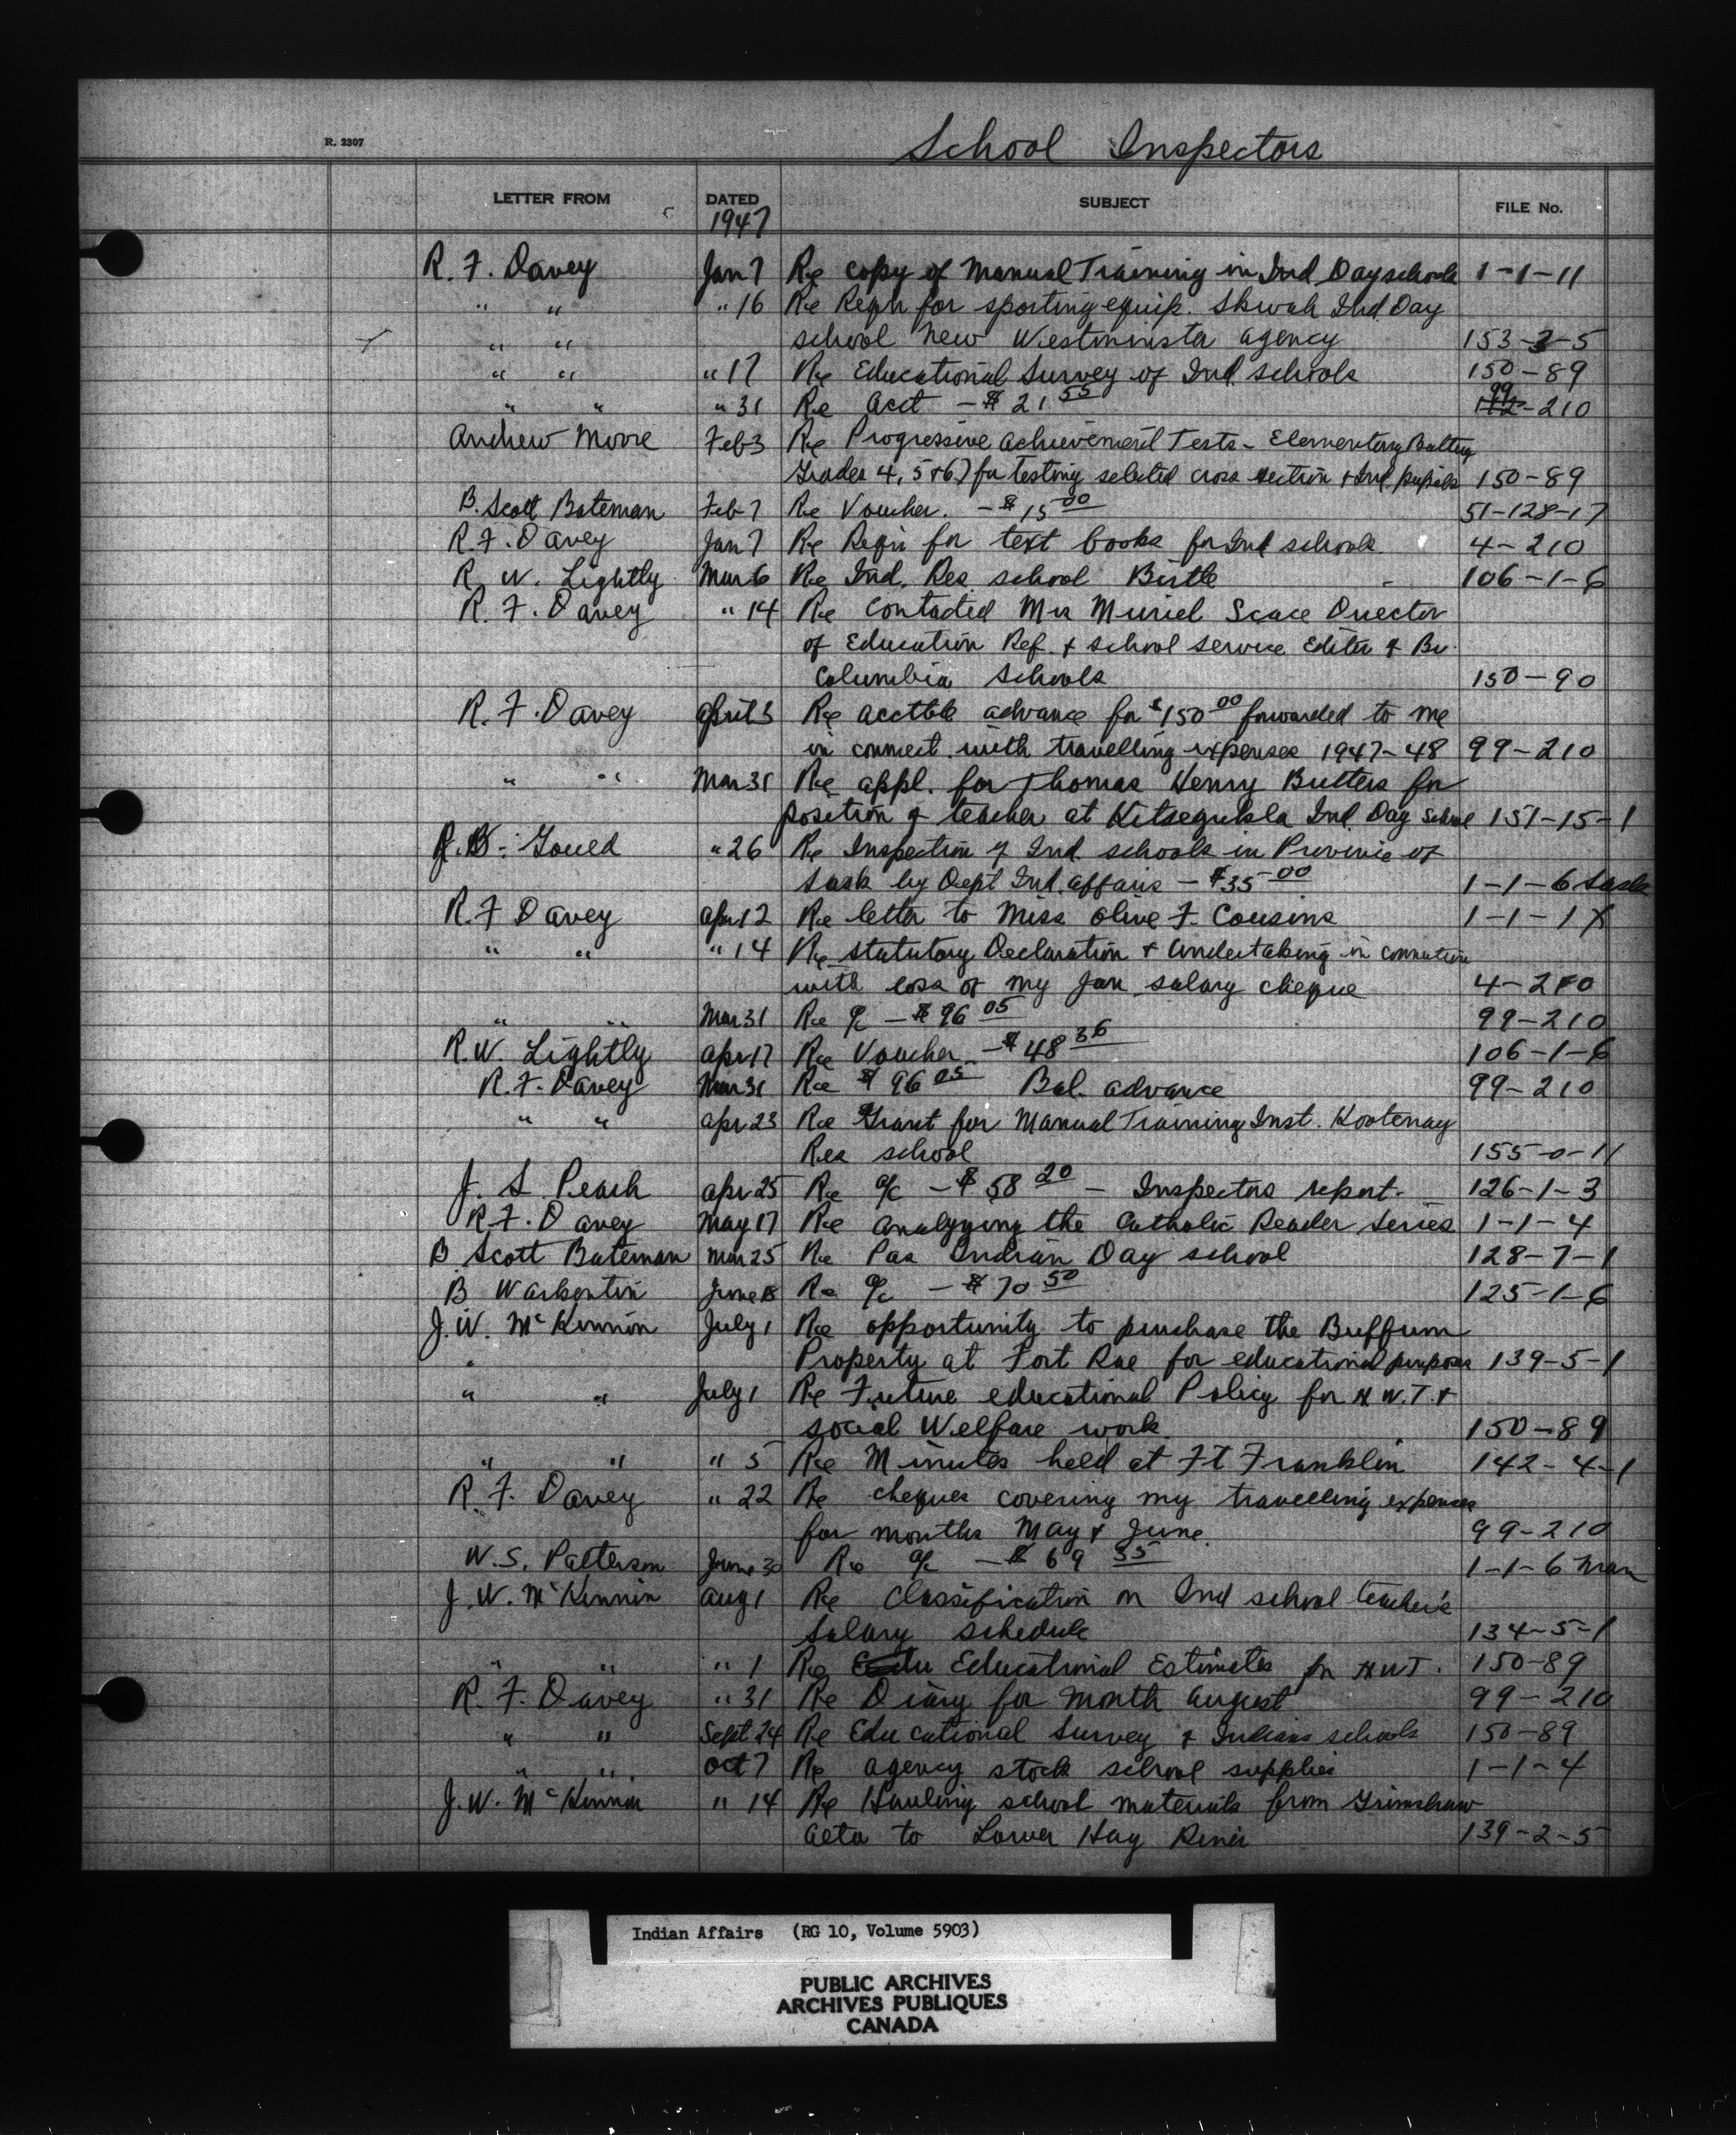 School Inspectors
R. 2307
LETTER FROM DATED SUBJECT FILE No.
1947
R. F. Davey Jan 7 Re copy of Manual Training in Ind Day schools 1-1-11
" " " 16 Re Reqn for sporting equip. Skwah Ind. Day
" " school New Westminster agency 153-2-5
" " " 17 Re Educational Survey of Ind. schools 150-89
" " " 31 Re acct - $21 55 99-210
Andrew Moore Feb 3 Re Progressive achievement Tests - Elementary Battery
Grades 4, 5 & 6) for testing selected cross section & Ind. pupils 150-89
B. Scott Bateman Feb 7 Re Voucher. - $15 00 51-128-17
R. F. Davey Jan 7 Re Reqn for text books for Ind schools 4-210
R. W. Lightly Mar 6 Re Ind. Res school Birtle 106-1-6
R. F. Davey " 14 Re Contacted Mrs Muriel Scace Director
of Education Ref. & school service Editor & Br.
Columbia Schools 150-90
R. F. Davey April 3 Re acctble advance for $150 00 forwarded to me
in connect. with travelling expenses 1947-48 99-210
" " Mar 31 Re appl. for Thomas Henry Butters for
position of teacher at Kitsegukla Ind. Day School 151-15-1
Goued " 26 Re Inspection of Ind. schools in Province of
Sask by Dept Ind. affairs - $35 00 1-1-6 Sask
R. F Davey apr 12 Re letter to Miss Olive F. Cousins 1-1-1X
" " " 14 Re Statutory Declaration & Undertaking in connection
with loss of my Jan salary cheque 4-210
" " Mar 31 Re a/c - $96 05 99-210
R. W. Lightly apr 17 Re Voucher - $48 36 106-1-6
R. F. Davey Mar 31 Re $96 05 Bal. advance 99-210
" " apr 23 Re Grant for Manual Training Inst. Kootenay
Res school 155-0-11
J. S. Peach apr 25 Re a/c - $58 20 - Inspectors report. 126-1-3
R. F. Davey May 17 Re analyzing the Catholic Reader Series 1-1-4
B. Scott Bateman Mar 25 Re Pas Indian Day school 128-7-1
B Warkentin June 18 Re a/c - $70 50 125-1-6
J. W. McKinnon July 1 Re opportunity to purchase the Buffum
" Property at Fort Rae for educational purposes 139-5-1
" " July 1 Re Future educational Policy for N.W.T. &
social Welfare work 150-89
" " " 5 Re Minutes held at Ft Franklin 142-4-1
R. F. Davey " 22 Re cheques covering my travelling expenses
for months May & June. 99-210
W. S. Patterson June 30 Re a/c - $69 35 1-1-6 Man
J. W. McKinnon aug 1 Re Classification on Ind school teacher's
Salary schedule 134-5-1
" " " 1 Re Educational Estimates for N.W.T. 150-89
R. F. Davey " 31 Re Diary for month August 99-210
" " Sept 24 Re Educational Survey & Indians schools 150-89
" " Oct 7 Re agency stock school supplies 1-1-4
J. W. McKinnon " 14 Re Hauling school materials from Grimshaw
to Lower Hay River 139-2-5
Indian Affairs (RG 10, Volume 5903)
PUBLIC ARCHIVES
ARCHIVES PUBLIQUES
CANADA